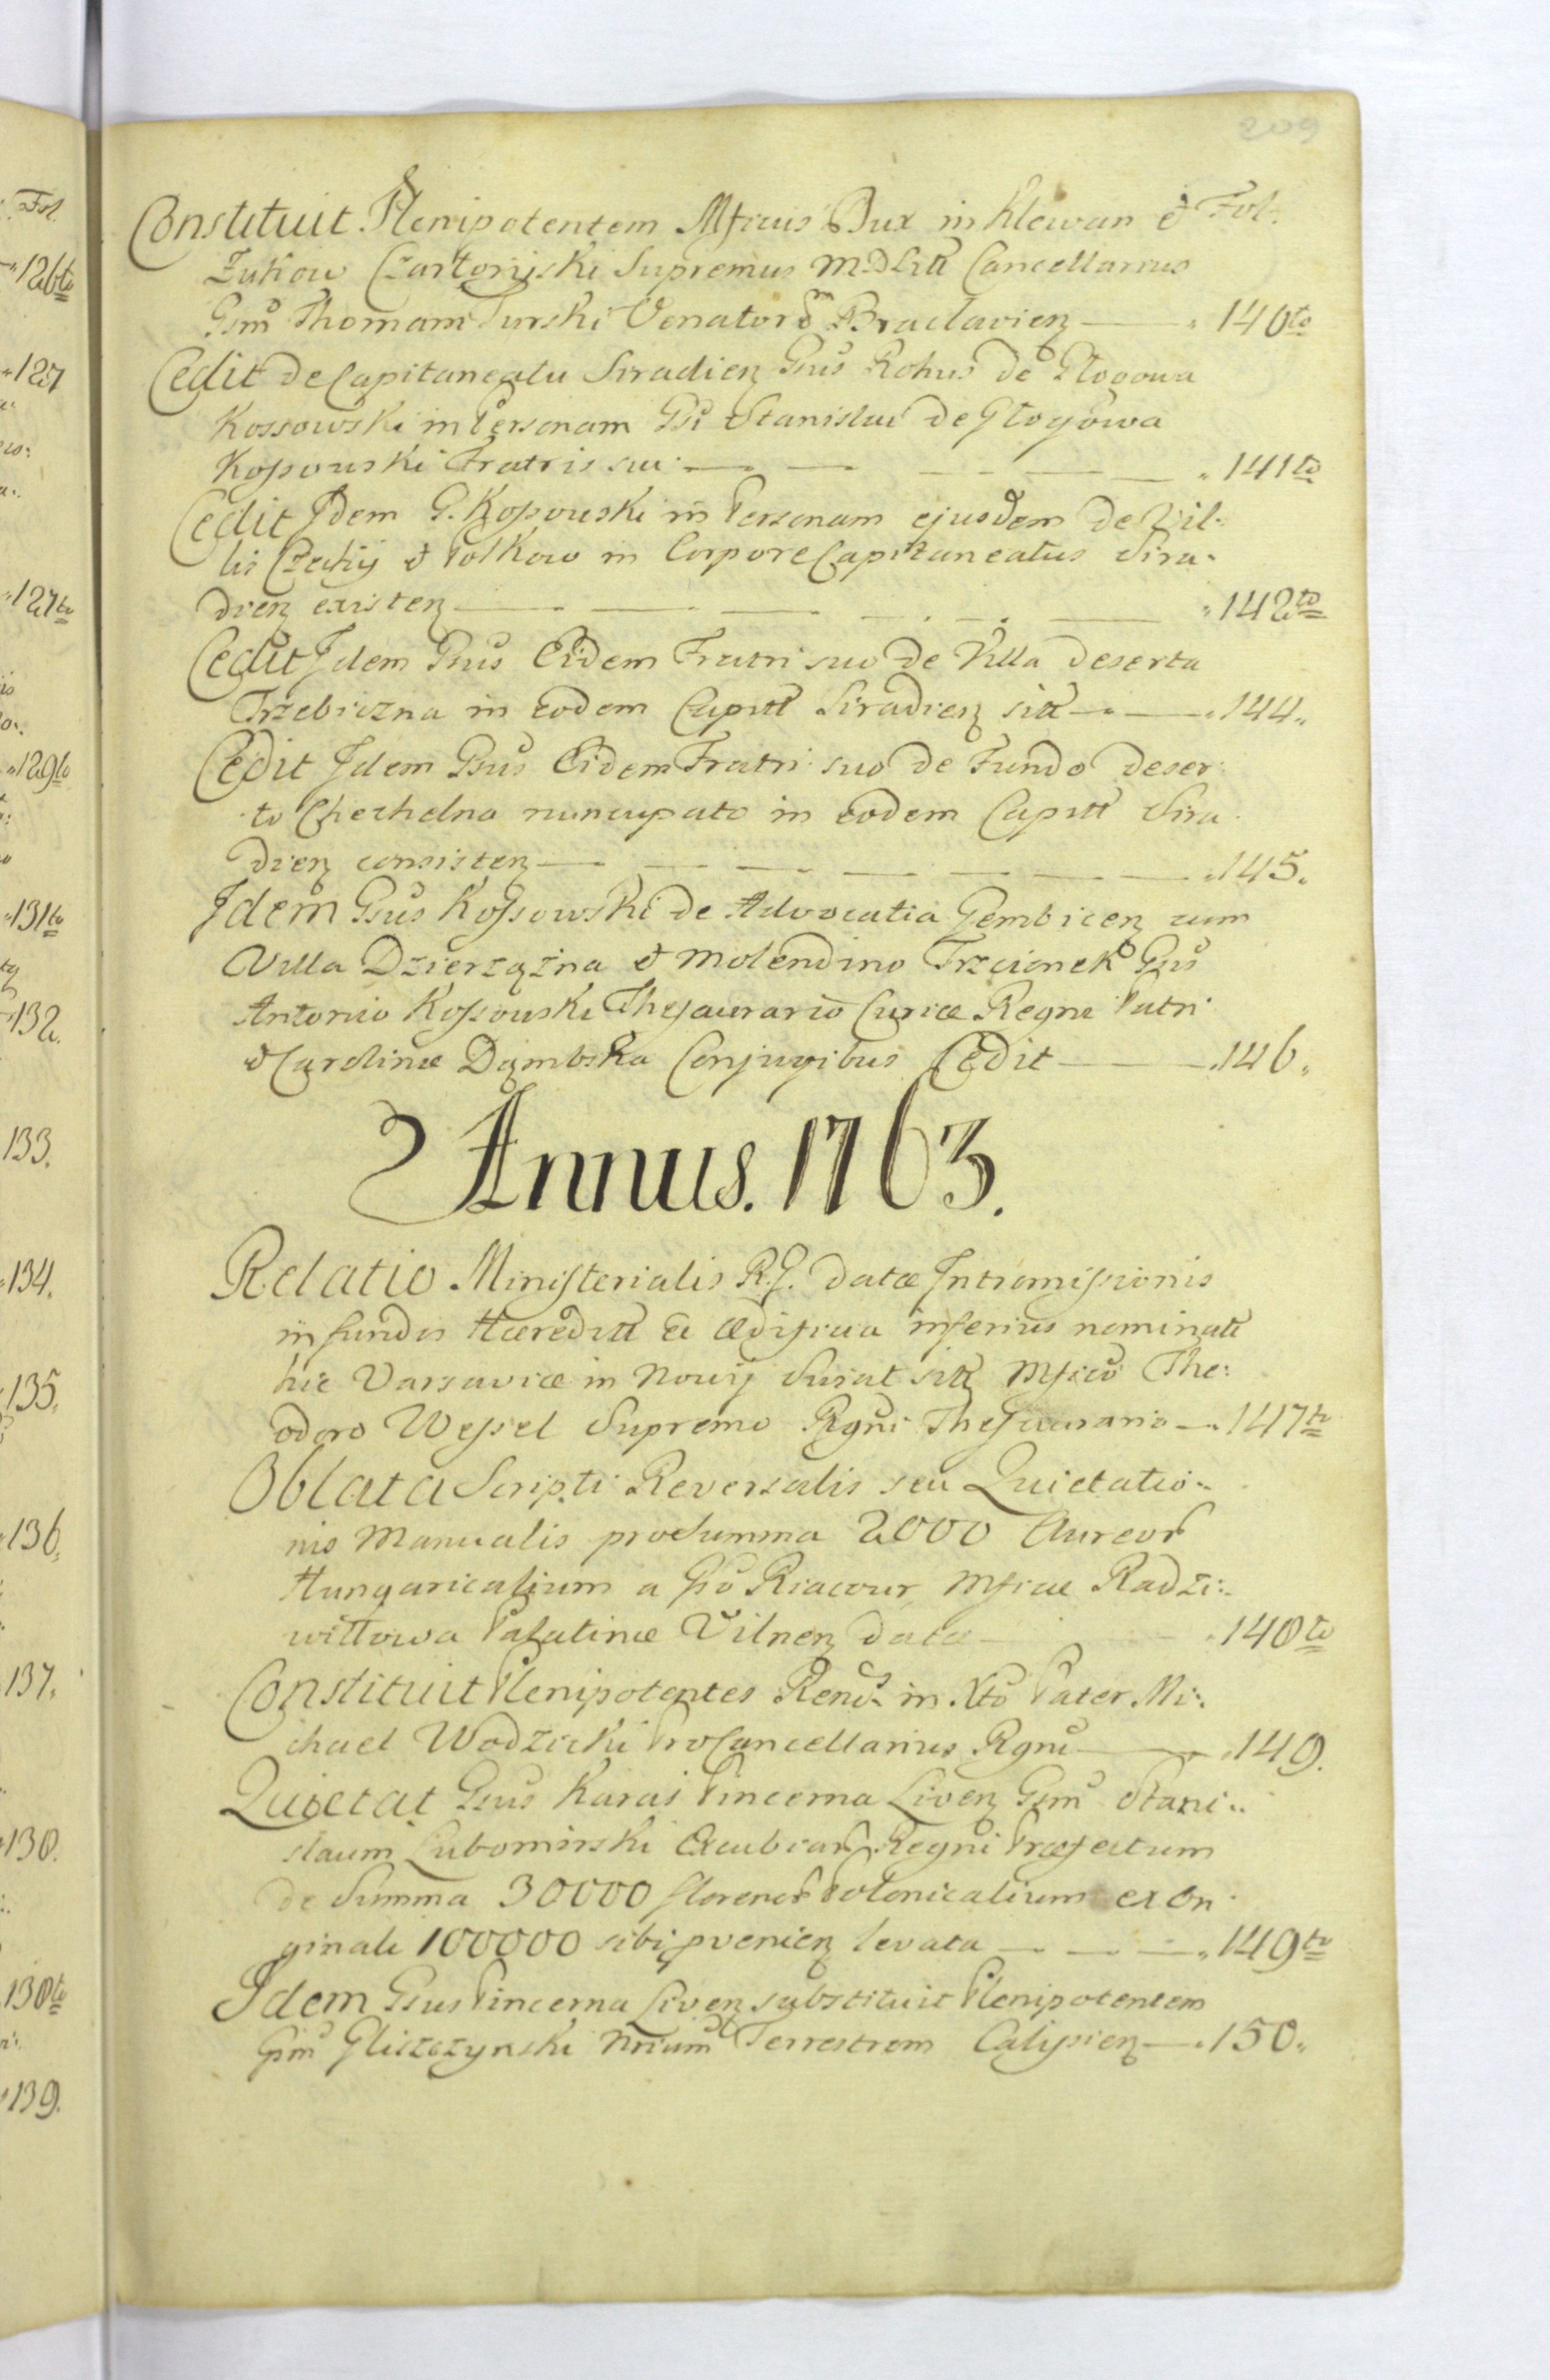 209
Constituit Plenipotentem Mficus Dux in Klewan & Fol.
Żukow Czartoryiski Supremus M.D.Litt Cancellarius
Gsm Thomam Turski Venatorem Braclavien 140to
Cedit de Capitaneatu Siradien Gsus Rohus de Głogowa
Kossowski in Personam Gsi Stanislai de Głogowa
Kossowski Fratris sui 141to
Cedit Idem G. Kossowski in Personam ejusdem de Vil-
lis & Polkow in Corpore Capitaneatus Sira-
dien existen 142to
Cedit Idem Gsus Eidem Fratri suo de Villa deserta
Trzebiczna in eodem Capitt Siradien sitt 144.
Cedit Idem Gsus Eidem Fratri suo de Fundo deser-
to Chechelna nuncupato in eodem Capitt Sira-
dien consisten 145.
Idem Gsus Kossowski de Advocatia Gembicen cum
Villa Dzierzążna & Molendino Trzcionek Gsis
Antonio Kossowski Thesaurario Curiæ Regni Patri
& Carolinæ Dąmbska Conjugibus Cedit 146.
Annus. 1763.
Relatio Ministerialis R.G. datæ Intromissionis
in fundos Hæreditt & ædificia inferius nominatt
hic Varsaviæ in Nowy Swiat sitt Mfico The-
odoro Wessel Supremo Rgni Thesaurario 147to
Oblata Scripti Reversalis seu Quietatio-
nis Manualis pro Summa 2000 Aureor
Hungaricalium a Gso Riacour Mficæ Radzi-
wiłłowa Palatinæ Vilnen datæ 148to
Constituit Plenipotentes Rendus in Xto Pater Mi-
chael Wodzicki ProCancellarius Rgni 149.
Quietat Gsus Karas Pincerna Liven Gsm Stani-
slaum Lubomirski Excubiar Regni Præfectum
de Summa 30000 florenor Polonicalium ex Ori-
ginali 100000 sibi pvenien levata 149to
Idem Gsus Pincerna Liven substituit Plenipotentem
Gsm Gliszczynski Nrium Terrestrem Calissien 150.
Fol.
126to
127
127to
129to
131to
132.
133.
134.
135.
136.
137.
138.
138to
139.